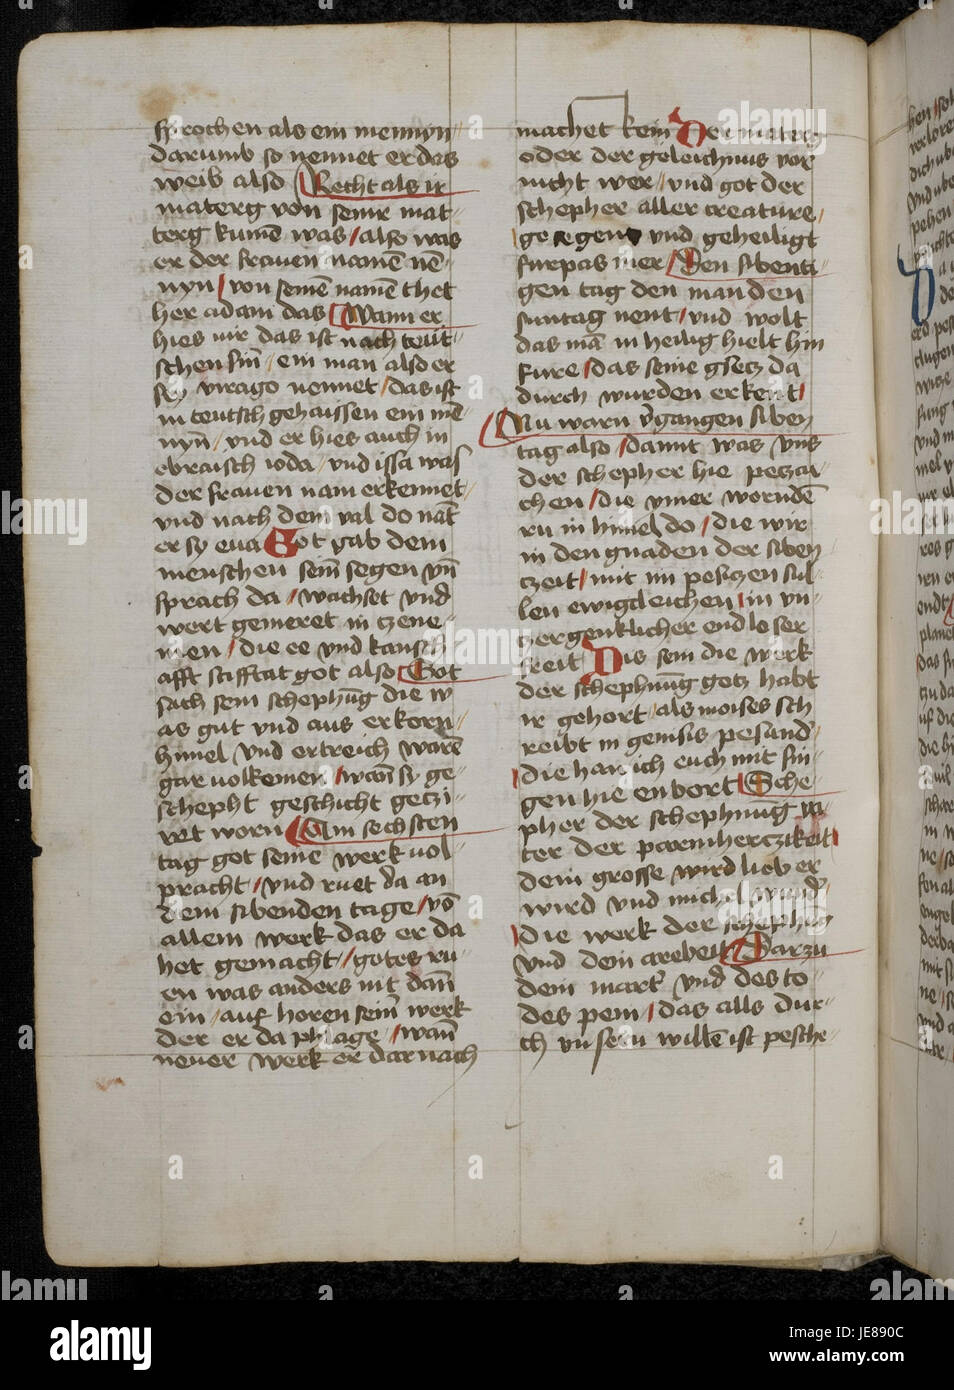 sprochen als ein mennyn
darumb so nennet er das
weib also Recht als ir
materg von seinr mat
terg kumē was also was
er der frauen namē nē
nyn von seinē namē thet
her adam das Wann er
hies vir das ist nach teut
schen sin̄ ein man als der
sey virago nennet das ist
in teutsch gehaissen ein mē
nyn̄ vnd er hies auch in
ebraisch ioda vnd issa was
der frauen nam erkennet
vnd nach dem val do nāt
er sy eua Got gab dem
menschen sein̄ segen vn̄
sprach da wachset vnd
wert gemeret in czene
men die ee vnd kansch
afft stifftat got also Got
sach sein schephūg die w
as gut vnd aus erkorn
himel vnd ertreich warē
gar volkemen wan̄ sy ge
schepht geschicht geczi
ret worn Am sechsten
tag got seine werk vol
pracht vnd ruet da an
dem sibenden tage vō
allem werk das er da
het gemacht gotes ru
en was anders nit dan̄
ein auf horen sein̄ werk
der er da phlage wan̄
neuer werk er darnach
machet kein Der materg
oder der geleichnus vor
nicht wer vnd got der
schepher aller creature
gesegent vnd geheiligt
furpas mer Den sibenti
gen tag den man den
suntag nent vnd wolt
das mā in heilig hielt hin
fure das seine gsecz da
durch wurden erkent
Nu warn v̄gangen siben
tag also damit was vns
der schepher hie peczai
chen die vnser worndē
ru in himel do die wir
in den gnaden der siben
czeit mit im pesiczen sul
len ewigcleichen in vn
czergenklicher endloser
freit Dis sein die werk
der schephnūg gotz habt
ir gehort als moises sch
reibt in genisis pesund̄
die han ich euch mit sin
gen hie enbort Sche
pher der schephnūg va
ter der parmherczikeit
dem grosse wird lob er
wird vnd michel wund̄
die werk der schephūg
vnd dem arebeit Darzu
dem mart̄ vnd des to
des pein das alls dur
ch vnsern willē ist pesche
alamy
Image ID: JE890C
www.alamy.com